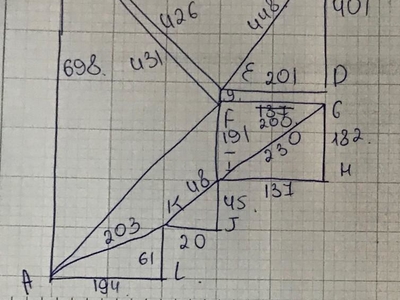 426
448
401
431
698.
E
201
D
9.
137
200.
G
F
191
230
182.
I
H
48
137
K
45.
203
20
J
61
A
194
L.